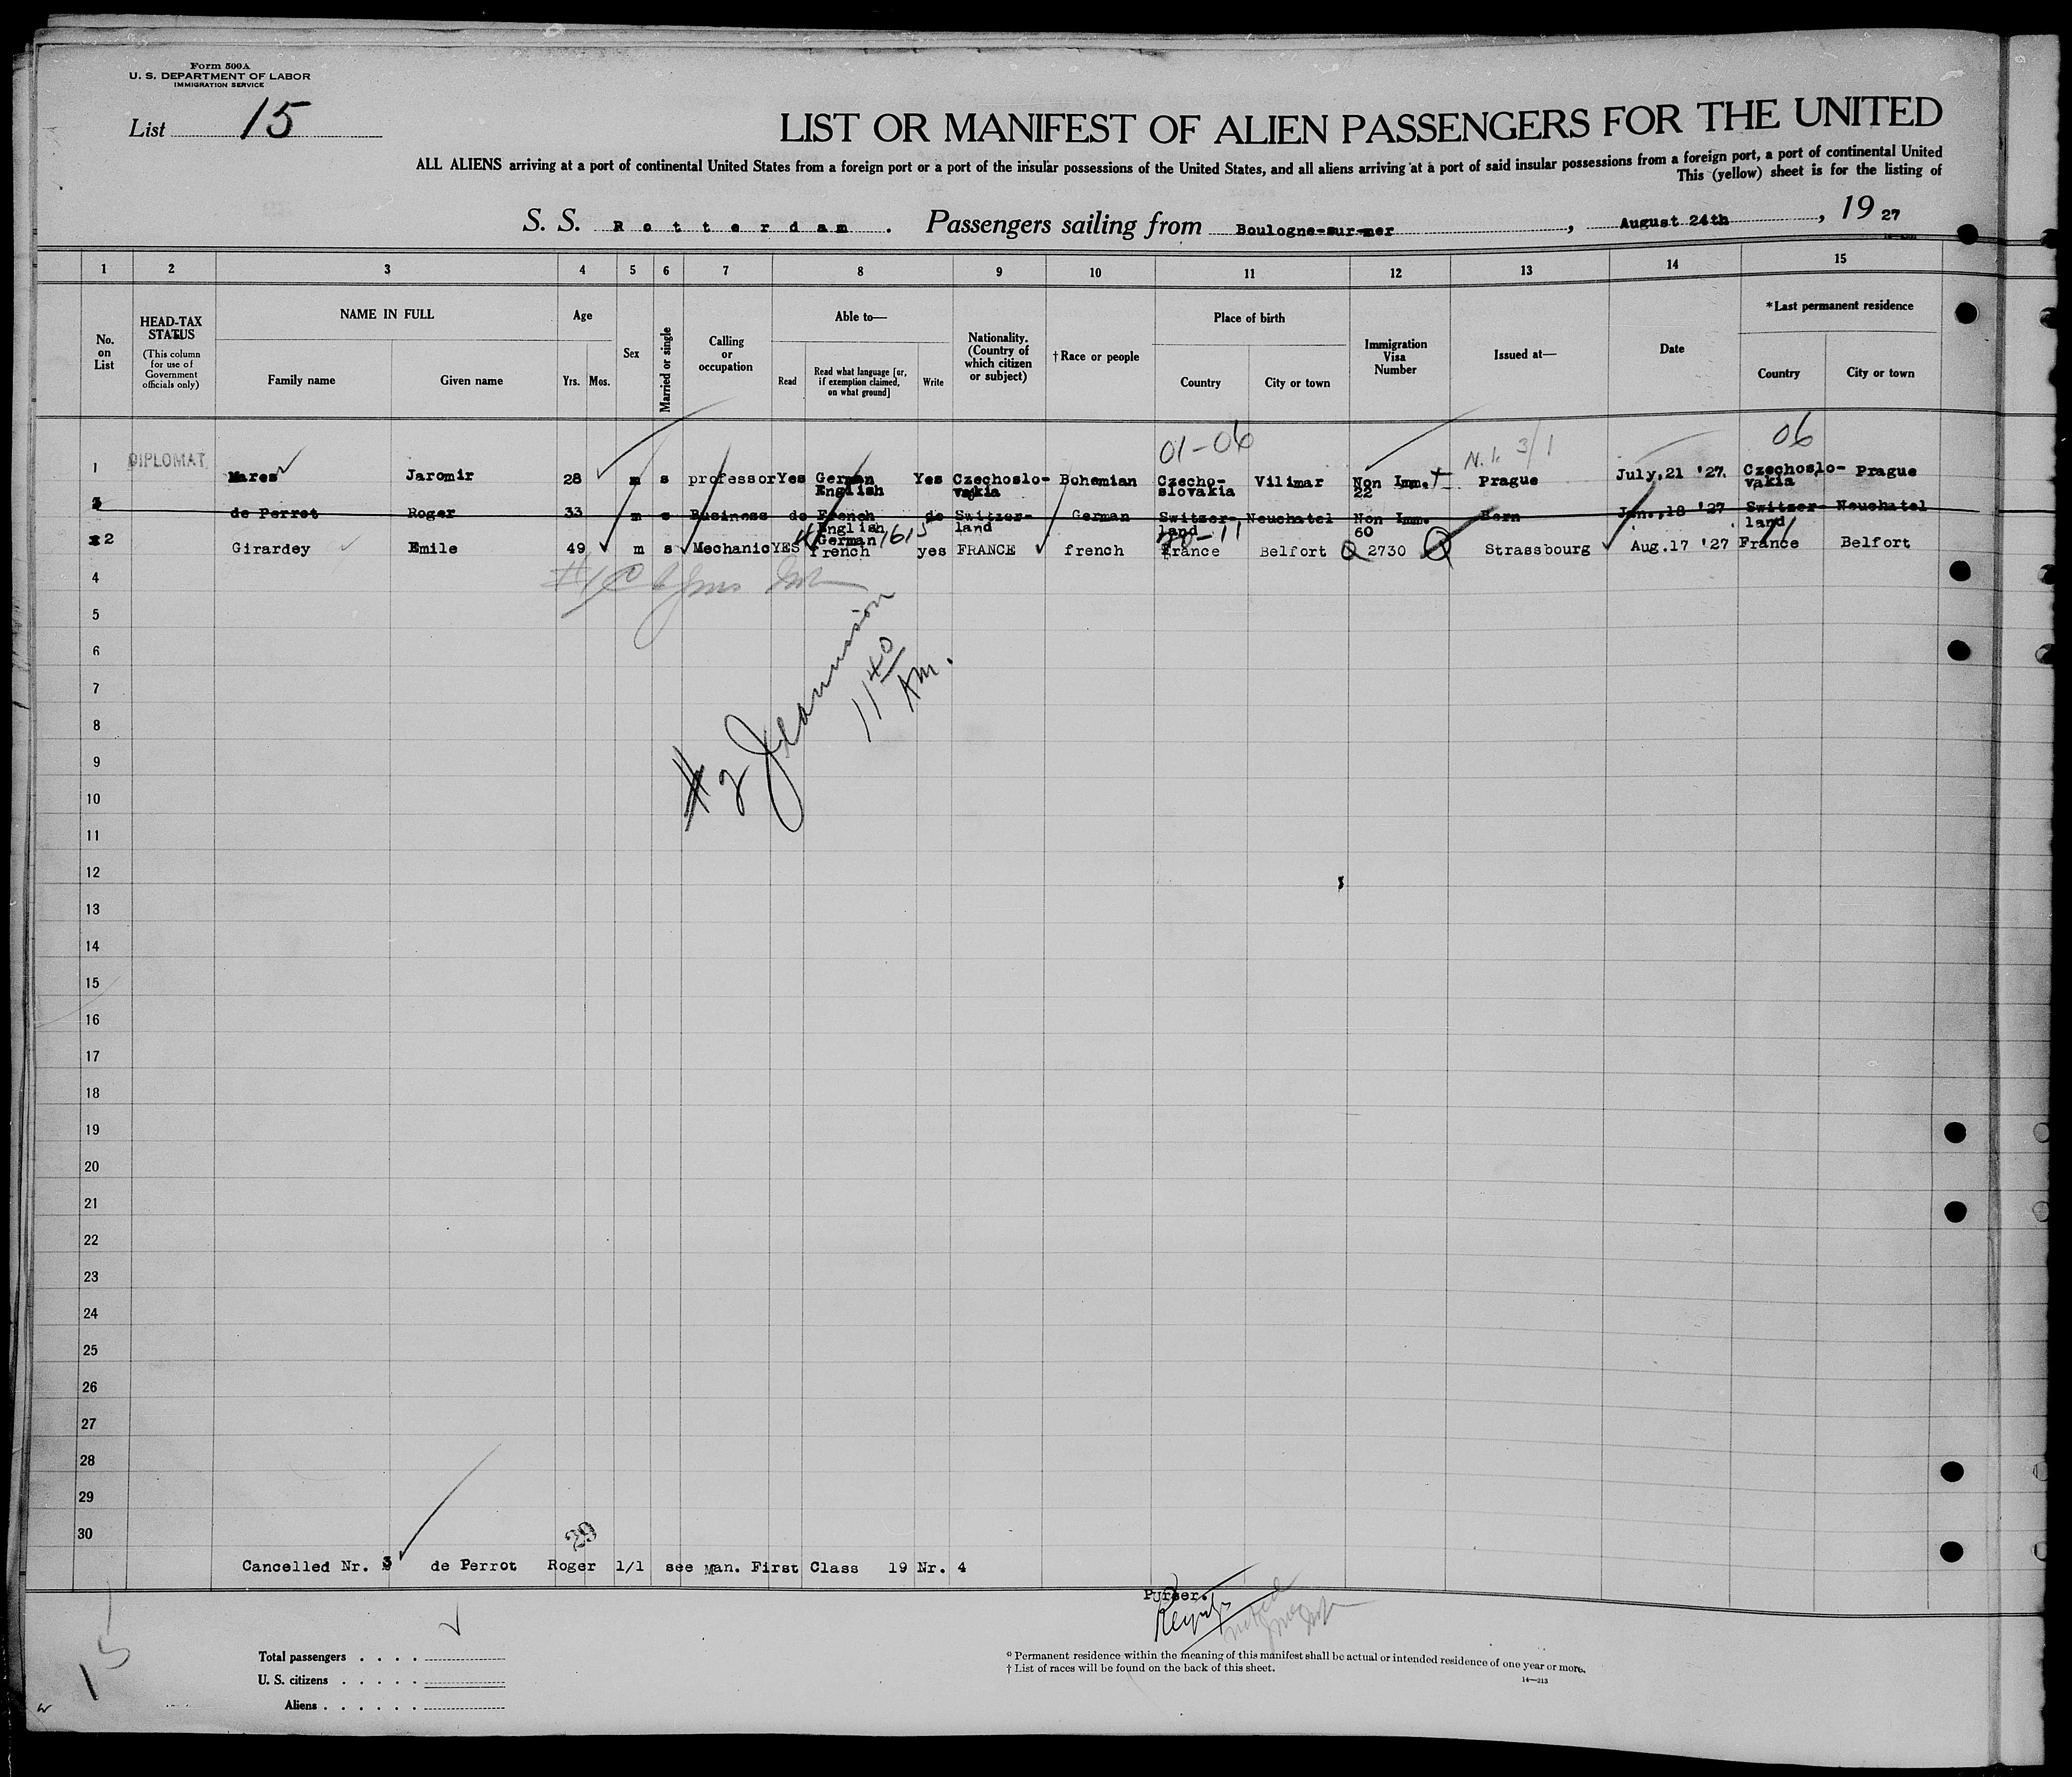 Form 500A
U. S. DEPARTMENT OF LABOR
IMMIGRATION SERVICE
List 15
LIST OR MANIFEST OF ALIEN PASSENGERS FOR THE UNITED
ALL ALIENS arriving at a port of continental United States from a foreign port or a port of the insular possessions of the United States, and all aliens arriving at a port of said insular possessions from a foreign port, a port of continental United
This (yellow) sheet is for the listing of
S. S. Rotterdam . Passengers sailing from Boulogne-sur-mer , August 24th , 19 27
1 2 3 4 5 6 7 8 9 10 11 12 13 14 15
No. on List
HEAD-TAX STATUS
(This column for use of Government officials only)
NAME IN FULL
Family name Given name
Age
Yrs. Mos.
Sex
Married or single
Calling or occupation
Able to—
Read
Read what language [or, if exemption claimed, on what ground]
Write
Nationality. (Country of which citizen or subject)
†Race or people
Place of birth
Country City or town
Immigration Visa Number
Issued at—
Date
*Last permanent residence
Country City or town
01-06 N.I. 3/1 06
1 DIPLOMAT Mares Jaromir 28 m s professor Yes German English Yes Czechoslovakia Bohemian Czechoslovakia Vilimar Non Imm. 22 Prague July.21 '27. Czechoslovakia Prague
de Perrot Roger 33 m s Business do French English German do Switzerland German Switzerland Neuchatel Non Imm. 60 Bern Jan.,18 '27 Switzerland Neuchatel
2 Girardey Emile 49 m s Mechanic YES french yes FRANCE french France Belfort 2730 Strassbourg Aug.17 '27 France Belfort
4
5
6
7
8
9
10
11
12
13
14
15
16
17
18
19
20
21
22
23
24
25
26
27
28
29
30
#2 Jeannison
11 40 AM.
29
Cancelled Nr. 3 de Perrot Roger 1/1 see man. First Class 19 Nr. 4
Purser.
15
Total passengers . . . .
U. S. citizens . . . . .
Aliens . . . . . .
* Permanent residence within the meaning of this manifest shall be actual or intended residence of one year or more.
† List of races will be found on the back of this sheet.
14—213